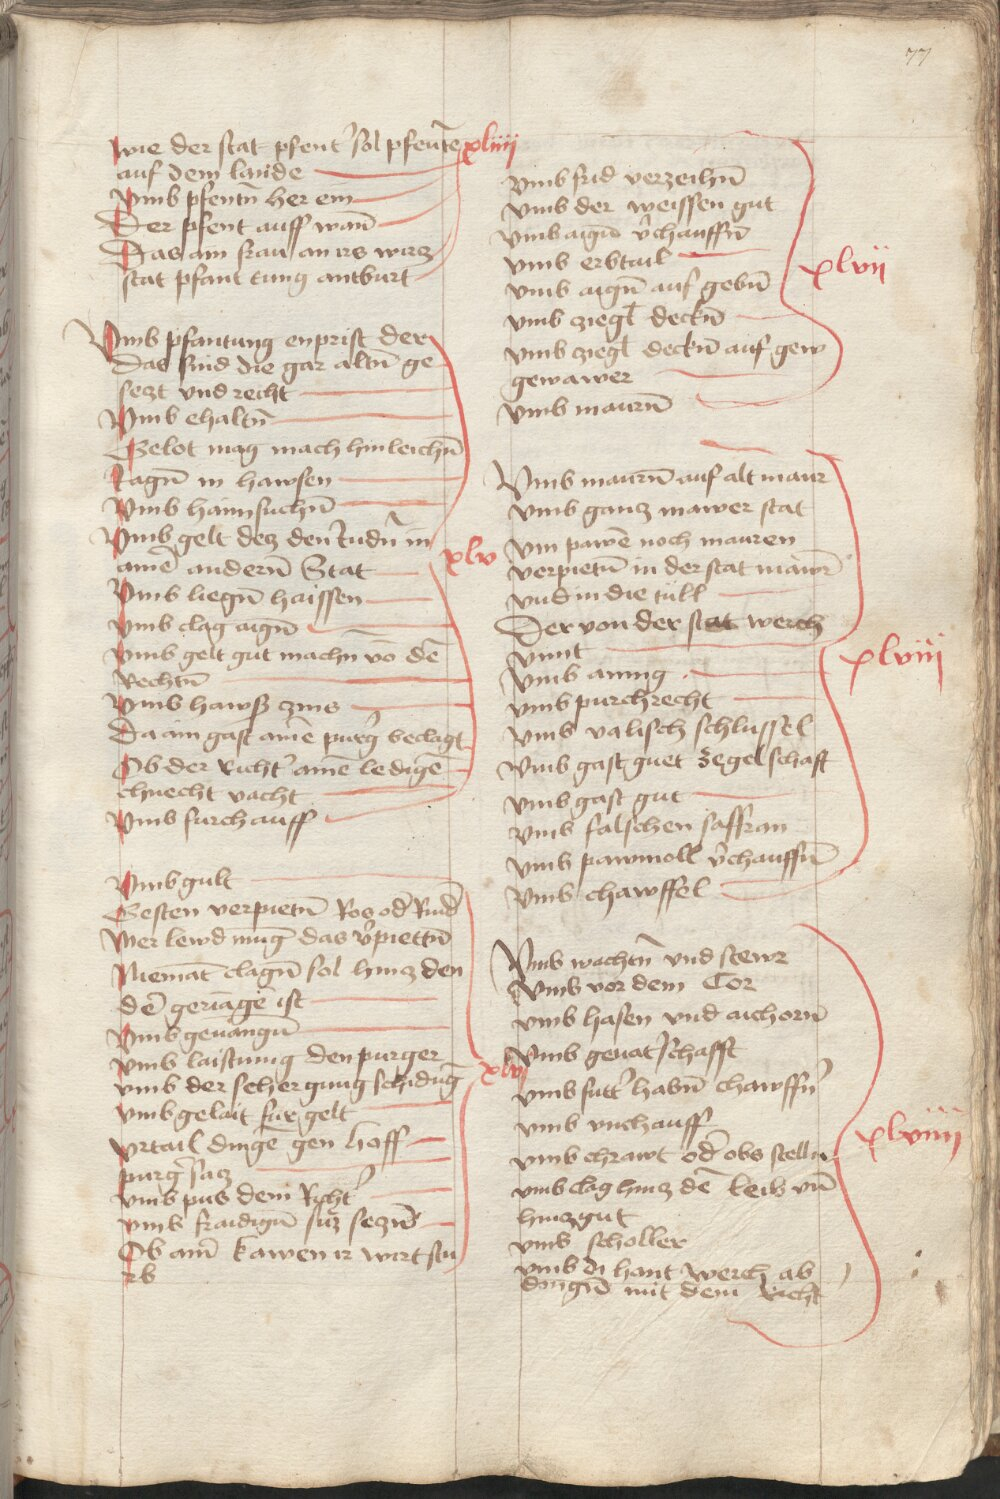 77
wie der stat pfent' sol pfentē xliiii
auf dem lande
vmb pfentn̄ her ein
Der pfent auff wan̄
Das ain frau an irs wirz
stat pfant tung antburt
Vmb pfantung enprist der
das sind die gar altn̄ ge
sezt vnd recht
Vmb ehaltn̄
Gelot mag mach hinleichn̄
Tagn̄ in hawsen
Vmb haimsuchn̄
Vmb gelt dez den in
ainē andern̄ Stat
xlv
Vmb liegn̄ haissen
vmb clag aign̄
vmb gelt gut machn vō dē
Rechtn̄
Vmb hawß zins
Da ain gast ainē purg' beclagt
Ob der richt' ainē ledigē
chnecht vacht
Vmb furchauff
Vmb gult
Gesten verpietn̄ Ros od' Rind'
Wer lewd mug das v'piettn̄
Niemāt clagn̄ sol hinz den
dē geriāgē ist
Vmb geuangn̄
vmb laistung den purger
xlvi
vmb der schergung schidūg
vmb gelait fur gelt
vrtail dingē gen hoff
purg' saz
vmb pus dem Richt'
vmb fraidign̄ fuz sezn̄
Ob ain̄ frawen ir wirt stu
rb
vmb frid verzeihn̄
vmb der weissen gut
vmb aign̄ v'chauffn̄
vmb erbtail
xlvii
vmb aign̄ auf gebn̄
vmb ziegl deckn̄
vmb ziegl deckn̄ auf gew
gewawer
vmb maurn̄
Vmb maurn̄ auf alt maur
vmb ganz mawer stat
vm pawē noch mauren
verpietn̄ in der stat mawr̄
vnd in die tüll
Der von der stat werch
nimt
xlviii
vmb aning
vmb purchrecht
vmb valisch schlussel
Vmb gast guet zegelschaft
vmb gast gut
vmb falschen saffran
vmb pawmoll v'chauffn̄
vmb chawffel
Vmb wachtn̄ vnd stewr
Vmb vor dem Tor
vmb hasen vnd aichorn̄
Vmb geuatschafft
vmb futt' habn̄ chawffn̄
vmb vnchauff
xlviiii
vmb chrawt od' obs stelln
vmb clag hinz dē leib vn̄
hinz gut
vmb scholler
vmb di hant werch ab
dingn̄ mit dem richt'